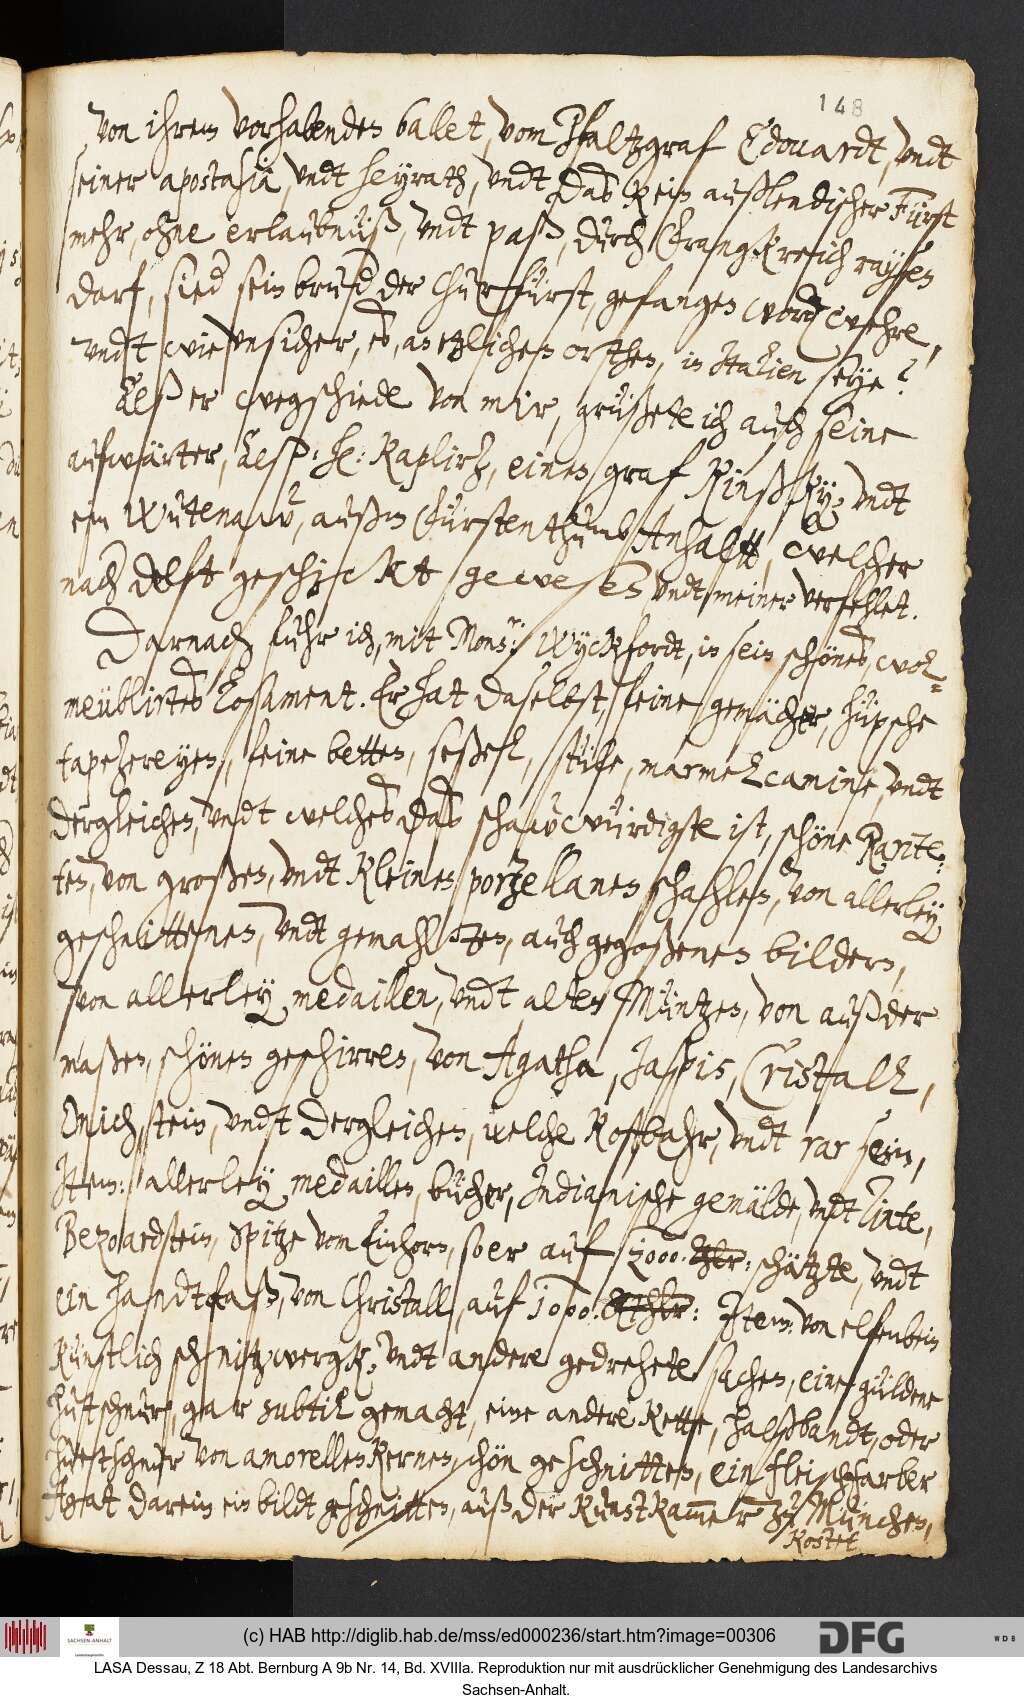 148
von ihrem vorhabenden ballet, vom Pfaltzgraf Edouardt, undt
seiner apostasia, undt heyrath, undt daß kein außlendischer Fürst
mehr, ohne erlaubnüß, undt paß, durch Franckreich raysen
darf, sied sein brud der Churfürst, gefangen word wehre,
undt wie unsicher, es, an etzlichen orthen, in Italien seye?
Alß er wegschiede von mir, grüßete ich auch seine
aufwärter, alß: H: Kaplirz, einen graf Kinßky, undt
ein Wutenaw, außm Fürstenthumb Anhaltt, welcher
nach Delft geschickt gewesen undt meiner verfehlet.
Darnach fuhr ich, mit Mons:r Wyckfordt, in sein schönes, wol¬
meüblirtes losament. Er hat daselbst, feine gemächer, hüpsche
tapezereyen, feine betten, seßel, stüle, marmelcamine, undt
dergleichen, undt welches das schawwürdigste ist, schöne Karite¬
ten, von großen, undt kleinen porzellanen schahlen, von allerley
geschnittenen, undt gemahlten, auch gegoßenen bildern,
von allerley medaillen, undt alten Müntzen, von auß der
maßen, schönen geschirren, von Agatha, Jaspis, Cristall,
Onich, stein, undt dergleichen, welche kostbahr, undt rar sein,
Item: allerley medaillen, bücher, Indianische gemälde, undt Tinte,
Bezoardstein, Spitze vom Einhorn, so er auf 2000 Thlr: schätzte, undt
ein handtfaß, von Christall, auf 1000 Rthlr: Item: von elfenbein
künstlich schnitzwergk, undt andere gedrehete sachen, eine güldene
hutschnur, gar subtil gemacht, eine andere Kette, halßbandt, oder
huetschnur von amorellenkernen, schön geschnitten, ein fleischfarber
Agat darein ein bildt geschnitten, auß der Kunstkammer zu München,
kostet
(c) HAB http://diglib.hab.de/mss/ed000236/start.htm?image=00306
SACHSEN-ANHALT
DFG
WDB
LASA Dessau, Z 18 Abt. Bernburg A 9b Nr. 14, Bd. XVIIIa. Reproduktion nur mit ausdrücklicher Genehmigung des Landesarchivs
Sachsen-Anhalt.